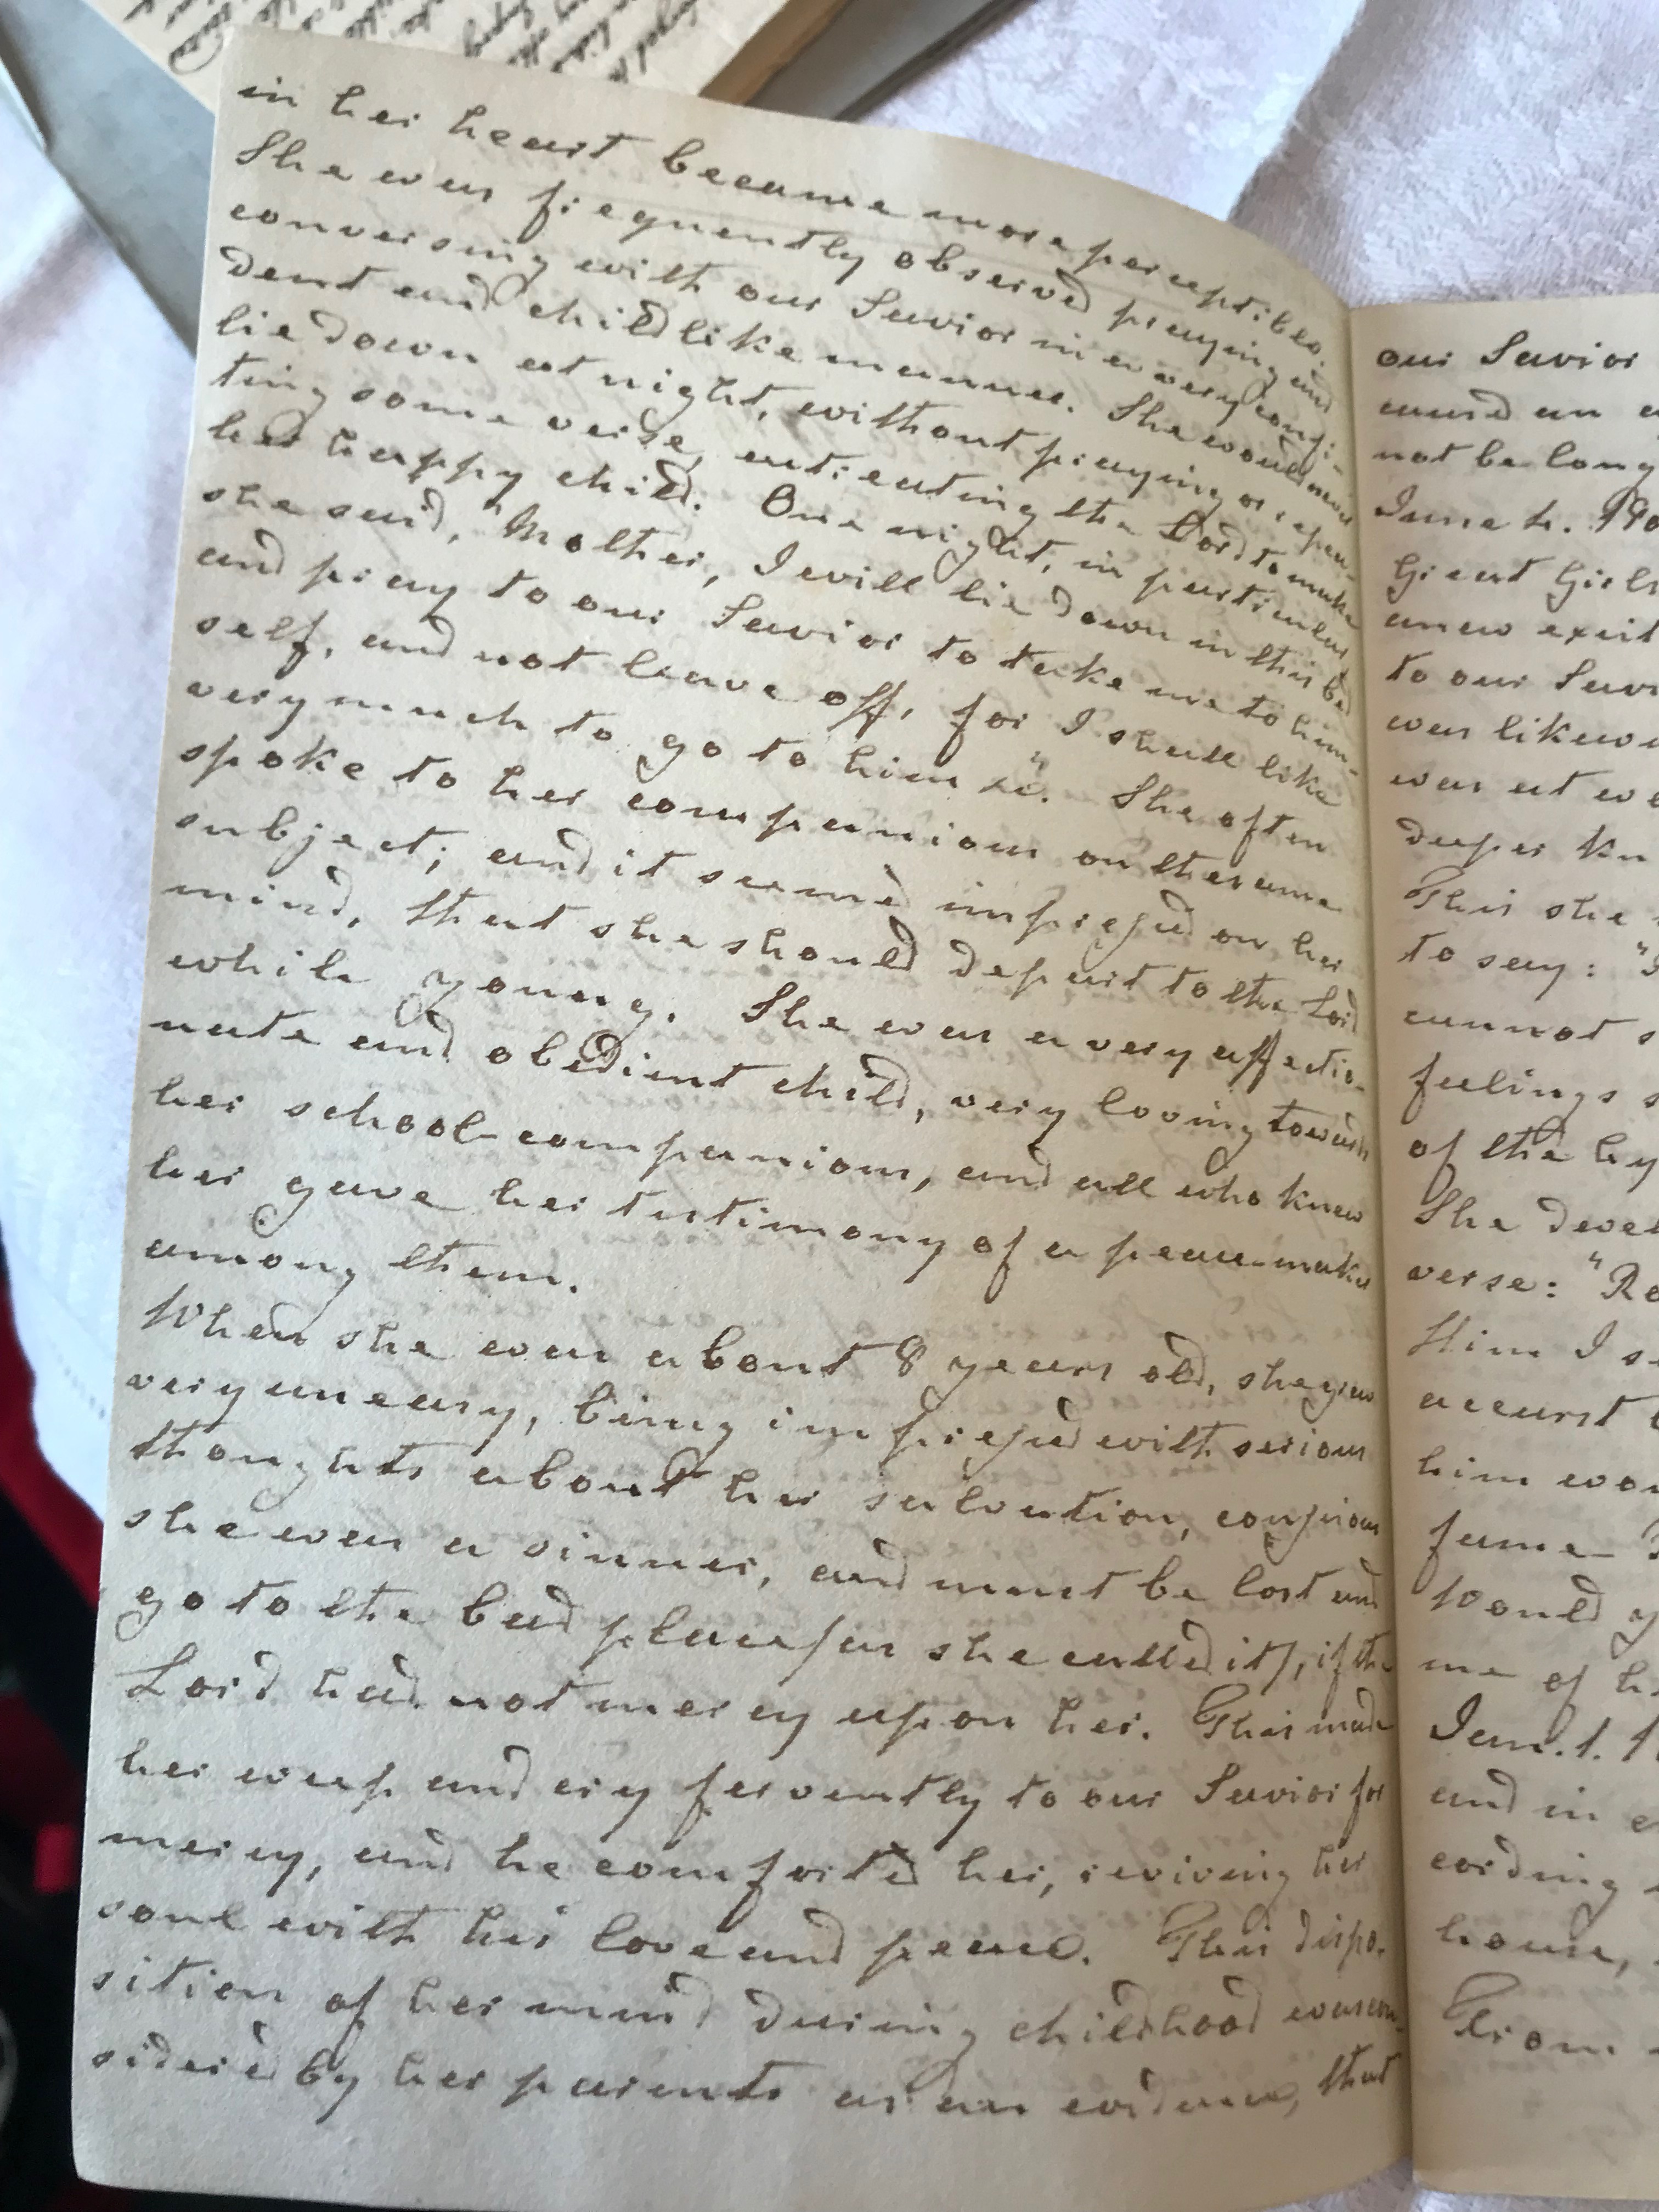 in her heart became more perceptible.
She was frequently observed praying and
conversing with our Savior in a very confi-
dent and childlike manner. She would never
lie down at night, without praying or repea-
ting some verse, entreating the Lord to make
her happy child. One night, in particular
she said, "Mother, I will lie down in this bed
and pray to our Savior to take me to him-
self, and not leave off, for I shall like
very much to go to him &c". She often
spoke to her companions on the same
subject; and it seemed impressed on her
mind, that she should depart to the Lord
while young. She was a very affectio-
nate and obedient child, very loving towards
her school-companions, and all who knew
her gave her testimony of a peace-maker
among them.
When she was about 8 years old, she grew
very uneasy, being impressed with serious
thoughts about her salvation, conscious
she was a sinner, and must be lost and
go to the bad place /as she called it/, if the
Lord had not mercy upon her. This made
her weep and cry fervently to our Savior for
mercy, and he comforted her, reviving her
soul with his love and peace. This dispo-
sition of her mind during childhood was con-
sidered by her parents as an evidence, that
our Savior
not be long
Great Girls
to our
was
was at
deeper
This she
to say: "
cannot
feelings
of the
She
verse: "
Him I
accurst
him
fame
Would
me of
Jan. 1.
and in
cording
house,
From